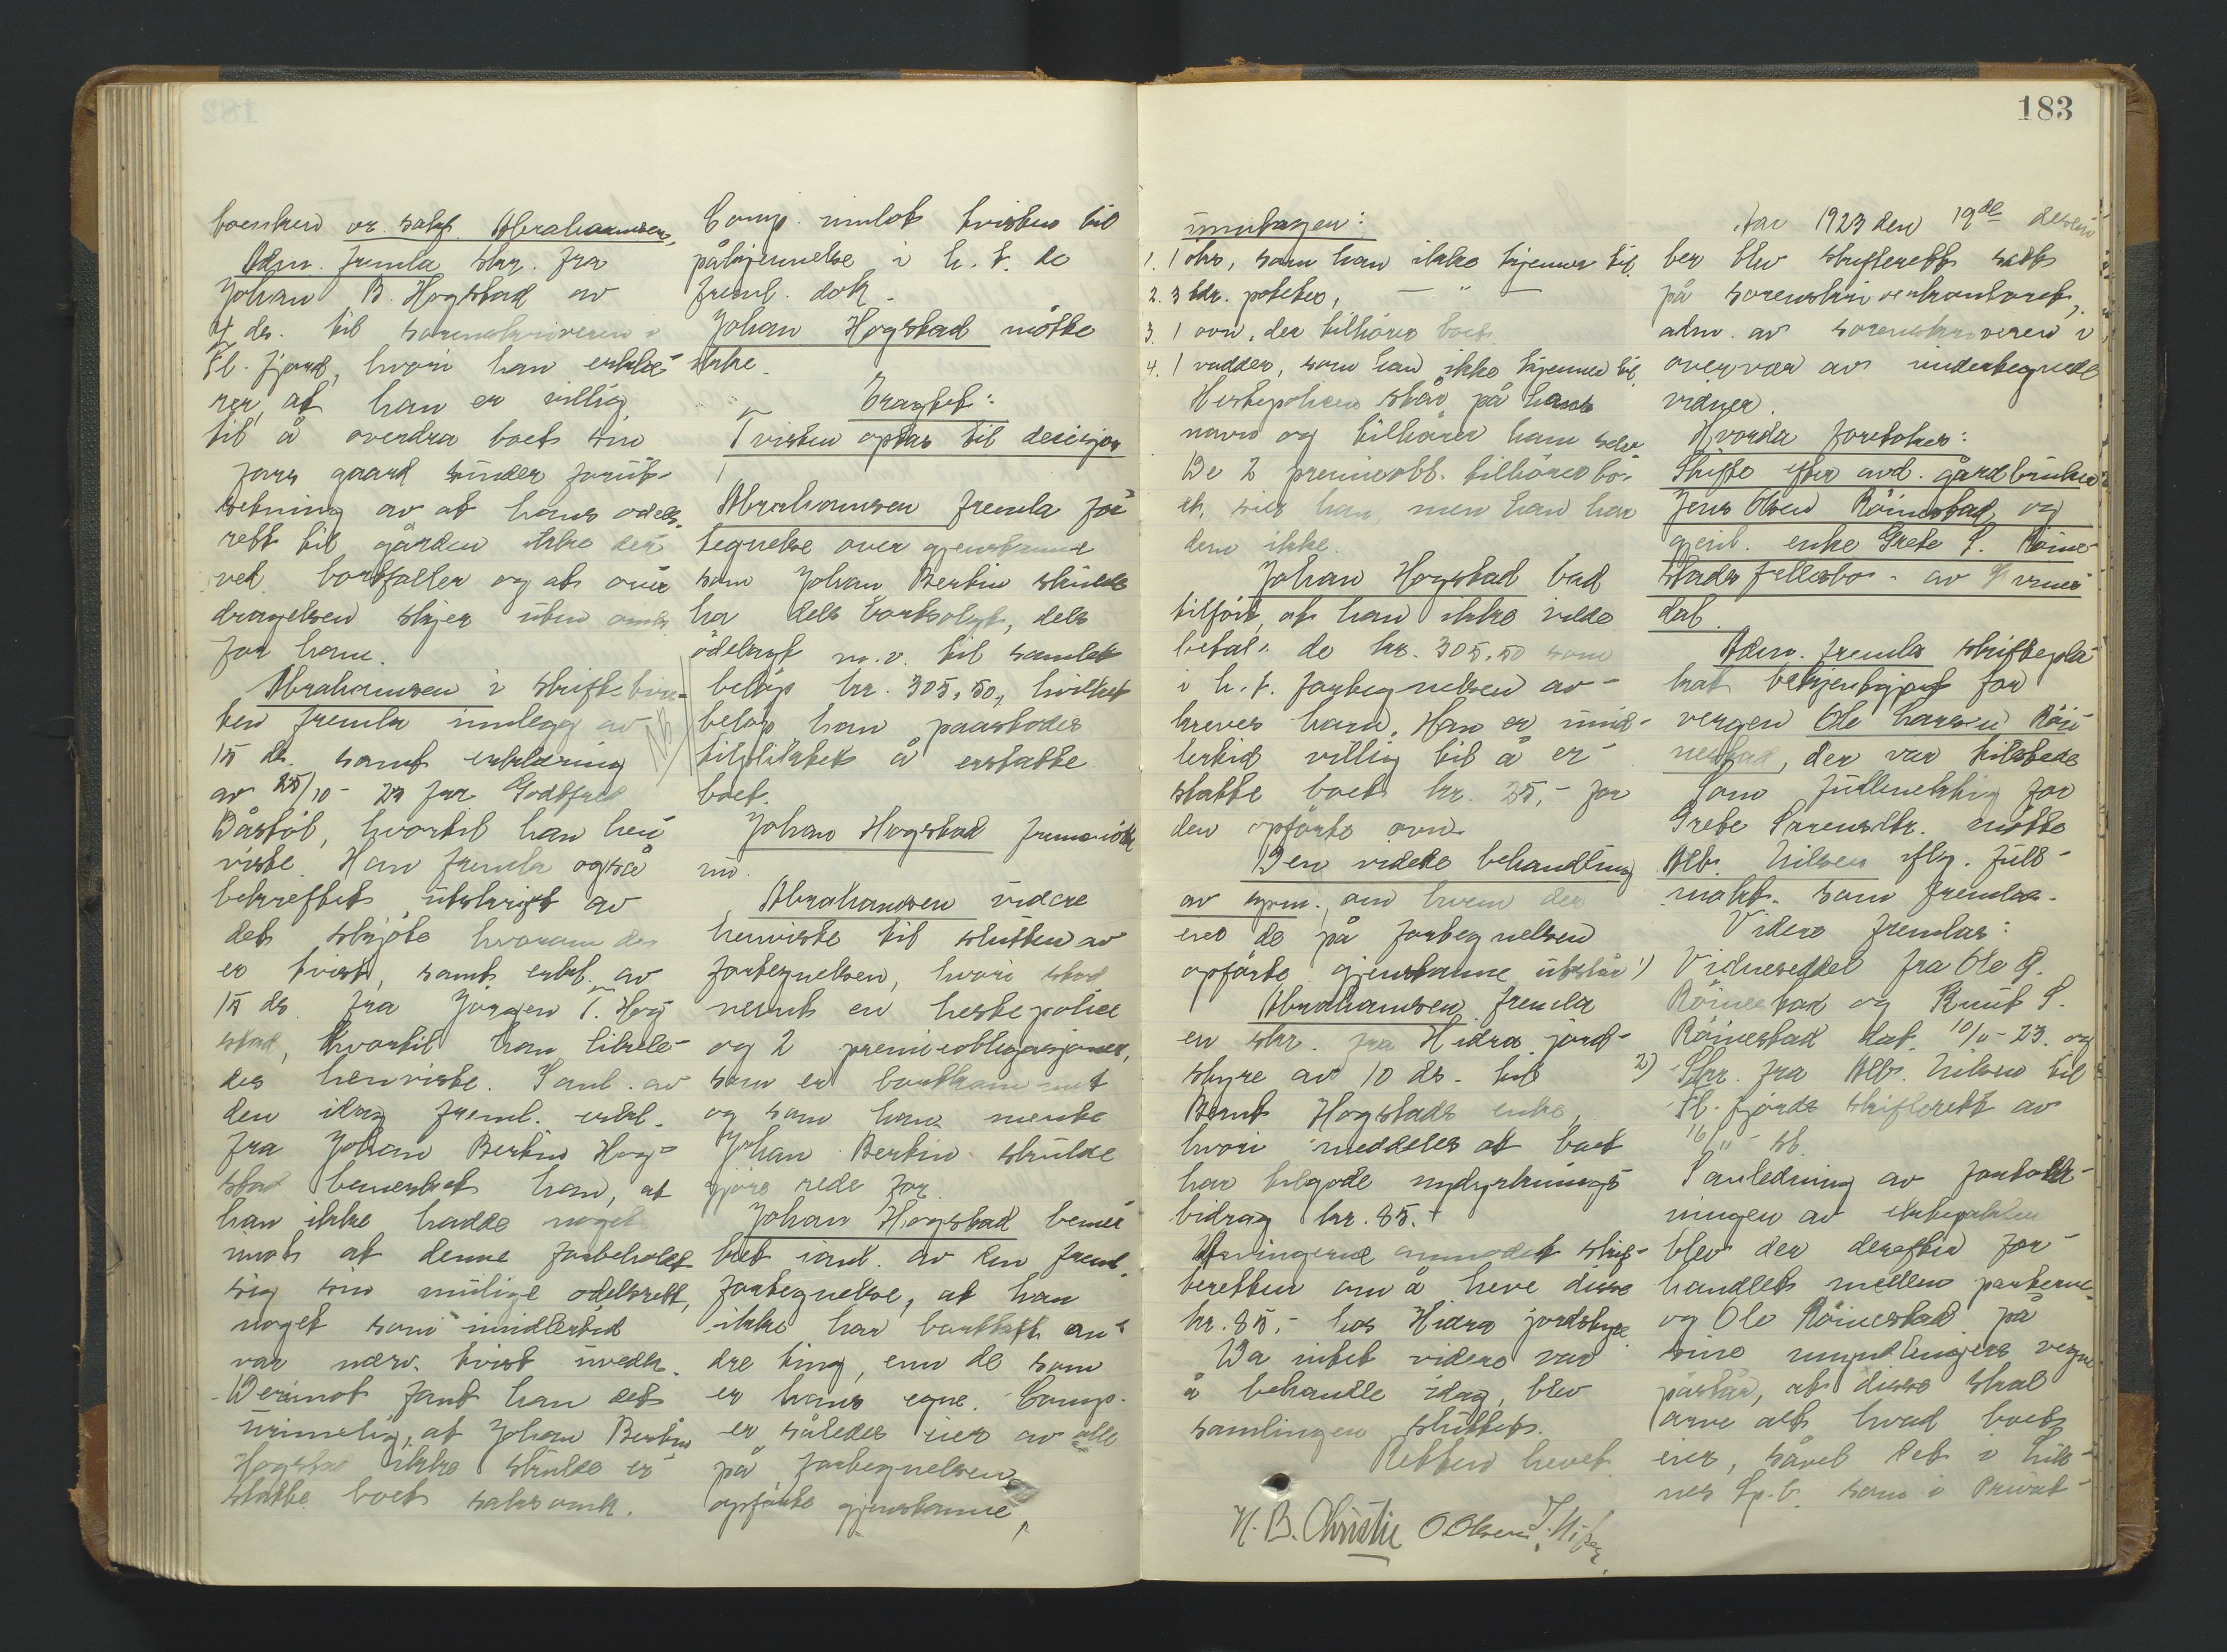 183
boenken or. sakf. Abrahamsen,
Adm. fremla skr. fra
Johan B. Hogstad av
4 ds. til sorenskriveren i
Fl. fjord, hvori han erklæ-
rer, at han er villig
til å overdra boet sin
fars gaard under forut-
setning av at hans odels-
rett til gården ikke der
ved bortfaller og at over
dragelsen skjer uten omk.
for ham.
Abrahamsen i skiftebou-
ten fremla innlegg av
15 ds. samt erklæring
av 25/10 - 23 fra Godtfred
Båstöl, hvortil han hen
viste. Han fremla også
bekreftet utskrift av
det skjöte hvorom der
er tvist, samt erkl. av
15 ds. fra Jörgen T. Hog
stad, hvortil han likele-
des henviste. I anl. av
den idag freml. erkl.
fra Johan Bertin Hog-
stad bemerket han, at
han ikke hadde noget
imot at denne forbeholdt
sig sin mulige odelsrett,
noget som imidlertid
var nærv. tvist uvedk.
Derimot fant han det
urimelig, at Johan Bertin
Hogstad ikke skulde er
statte boet saksomk.
Comp. innlot tvisten til
påkjennelse i h. t. de
freml. dok.
Johan Hogstad mötte
ikke.
Eragtet:
Tvisten optas til decisjon
Abrahamsen fremla for
tegnelse over gjenstanne
som Johan Bertin skulde
ha dels bortsolgt, dels
ödelagt m.v. til samlet
NB
belöp kr. 305,50, hvilket
belöp han paastodes
tilpliktet å erstatte
boet.
Johan Hogstad fremmötte
nu.
Abrahamsen videre
henviste til slutten av
fortegnelsen, hvori stod
nevnt en hestepolice
og 2 premieobligasjoner,
som er bortkommet
og som han mente
Johan Bertin skulde
gjöre rede for.
Johan Hogstad bemer
ket i anl. av den freml.
fortegnelse, at han
ikke har borttatt an-
dre ting, enn de som
er hans egne. Comp.
er således eier av alle
på fortegnelsen
opförte gjenstanne,
unntagen:
1. 1 ohr, som han ikke kjenner til.
2. 3 tdr. poteter, — " —
3. 1 ovn, der tilhörer boet
4. 1 vadder, som han ikke kjenner til.
Hestepolicen står på hans
navn og tilhörer ham selv.
De 2 premieobl. tilhörer bo-
et, sier han men han har
dem ikke.
Johan Hogstad bad
tilfört, at han ikke vilde
betale de kr. 305.50 som
i h. t. fortegnelsen av-
kreves ham. Han er imid-
lertid villig til å er-
statte boet kr. 25,- for
den opförte ovn.
Den videre behandling
av spm. om hvem der
eier de på fortegnelsen
opförte gjenstanne utstår
Abrahamsen fremla
en skr. fra Hidra jord-
styre av 10 ds. til
Bernt Hogstads enke,
hvori meddeles at boet
har tilgode nydyrknings
bidrag kr. 85.-
Arvingerne anmodet skif-
teretten om å heve disse
kr. 85,- hos Hidra jordstyre.
Da intet videre var
å behandle idag, blev
samlingen sluttet.
Retten hevet.
H. B. Christie O Olsen
År 1923 den 19de desem
ber blev skifterett satt
på sorenskriverkontoret,
adm. av sorenskriveren i
overvær av undertegnede
vidner.
Hvorda foretokes:
Skifte efter avd. gårdbruker
Jens Olsen Röinestad og
gjenl. enke Grete S. Röine-
stads fellesbo av Kvines
dal.
Adm. fremla skiftepla
kat bekjentgjort for
vergen Ole Larsen Röi
nestad, der var tilstede
Som fullmektig for
Grete Sørensdtr. mötte
Alb. Nilsen iflg. full-
makt som fremlas.
Videre fremlas:
1) Vidneseddel fra Ole G.
Röinestad og Knut S.
Röinestad dat. 10/11-23. og
2) Skr. fra Alb. Nilsen til
Fl. fjords skifterett av
16/11 - st.
I anledning av forkold-
ningen av ektepakten
blev der derefter for-
handlet mellem parterne,
og Ole Röinestad på
sine myndlingers vegne
påstår, at disse skal
arve alt hvad boet
eier, såvel det i Kvi-
nes Sp.b. som i Privat-